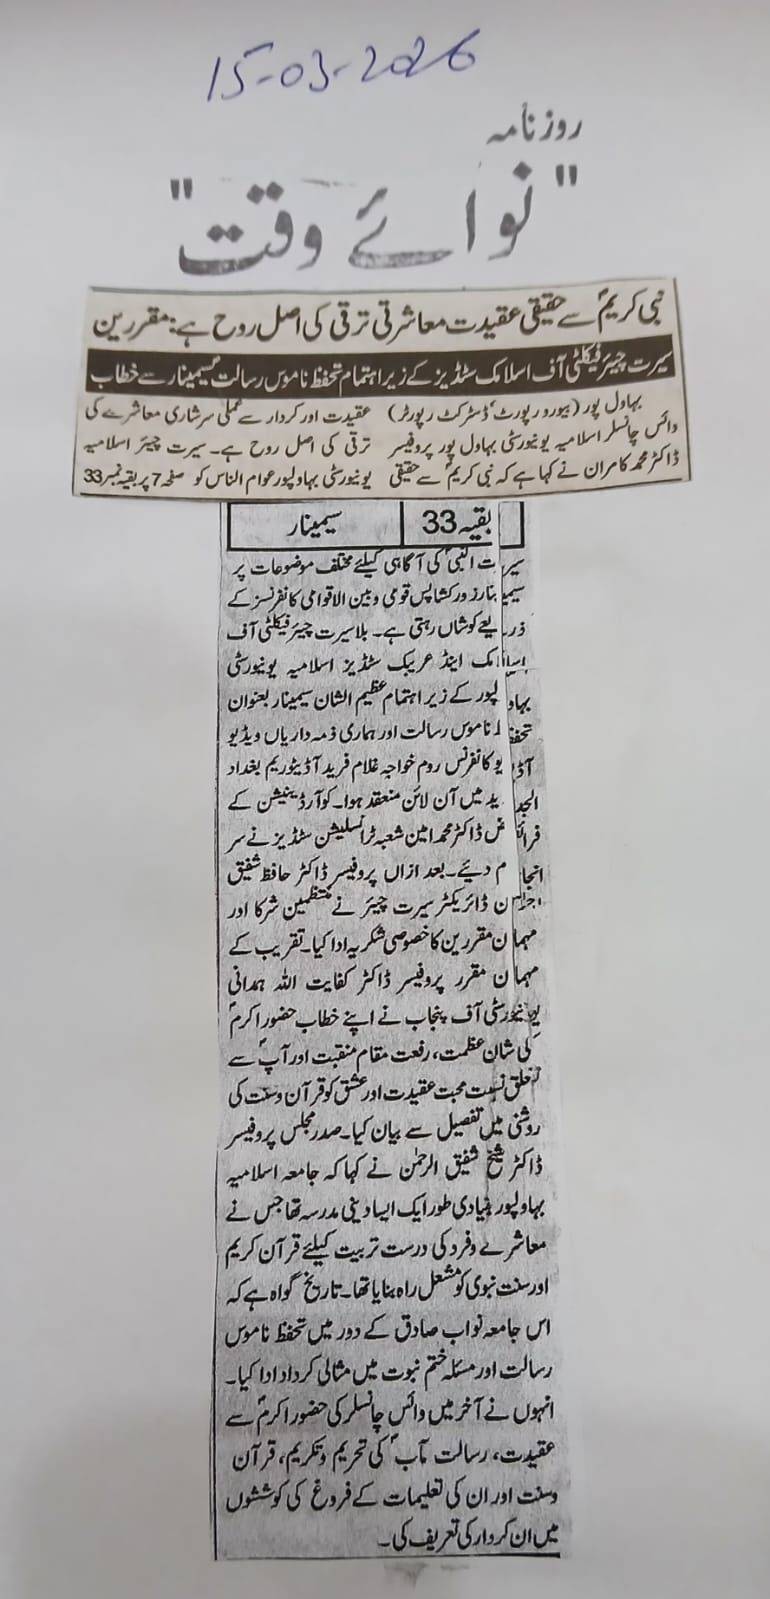 15-03-2026
روزنامہ
"نوائے وقت"
نبی کریمؐ سے حقیقی عقیدت معاشرتی ترقی کی اصل روح ہے: مقررین
سیرت چیئر فیکلٹی آف اسلامک سٹڈیز کے زیر اہتمام تحفظ ناموس رسالت سیمینار سے خطاب
بہاول پور (بیورو رپورٹ، ڈسٹرکٹ رپورٹر)
وائس چانسلر اسلامیہ یونیورسٹی بہاول پور پروفیسر
ڈاکٹر محمد کامران نے کہا ہے کہ نبی کریمؐ سے حقیقی
عقیدت اور کردار سے عملی سرشاری معاشرے کی
ترقی کی اصل روح ہے۔ سیرت چیئر اسلامیہ
یونیورسٹی بہاولپور عوام الناس کو صفحہ 7 پر بقیہ نمبر 33
بقیہ 33 سیمینار
سیرت النبیؐ کی آگاہی کیلئے مختلف موضوعات پر
سیمینارز ورکشاپس قومی و بین الاقوامی کانفرنسز کے
ذریعے کوشاں رہتی ہے۔ بلا سیرت چیئر فیکلٹی آف
اسلامک اینڈ عریبک سٹڈیز اسلامیہ یونیورسٹی
بہاولپور کے زیر اہتمام عظیم الشان سیمینار بعنوان
تحفظ ناموس رسالت اور ہماری ذمہ داریاں ویڈیو
آڈیو کانفرنس روم خواجہ غلام فرید آڈیٹوریم بغداد
الجدید میں آن لائن منعقد ہوا۔ کوآرڈینیشن کے
فرائض ڈاکٹر محمد امین شعبہ ٹرانسلیشن سٹڈیز نے سر
انجام دیئے۔ بعد ازاں پروفیسر ڈاکٹر حافظ شفیق
ن ڈائریکٹر سیرت چیئر نے منتظمین شرکا اور
مہمان مقررین کا خصوصی شکریہ ادا کیا۔ تقریب کے
مہمان مقرر پروفیسر ڈاکٹر کفایت اللہ ہمدانی
یونیورسٹی آف پنجاب نے اپنے خطاب حضور اکرمؐ
کی شان عظمت، رفعت مقام منقبت اور آپؐ سے
تعلق نسبت محبت عقیدت اور عشق کو قرآن و سنت کی
روشنی میں تفصیل سے بیان کیا۔ صدر مجلس پروفیسر
ڈاکٹر شیخ شفیق الرحمٰن نے کہا کہ جامعہ اسلامیہ
بہاولپور بنیادی طور ایک ایسا دینی مدرسہ تھا جس نے
معاشرے و فرد کی درست تربیت کیلئے قرآن کریم
اور سنت نبوی کو مشعل راہ بنایا تھا۔ تاریخ گواہ ہے کہ
اس جامعہ نواب صادق کے دور میں تحفظ ناموس
رسالت اور مسئلہ ختم نبوت میں مثالی کرداد ادا کیا۔
انہوں نے آخر میں وائس چانسلر کی حضور اکرمؐ سے
عقیدت، رسالت مآبؐ کی تحریم و تکریم، قرآن
و سنت اور ان کی تعلیمات کے فروغ کی کوششوں
میں ان کردار کی تعریف کی۔